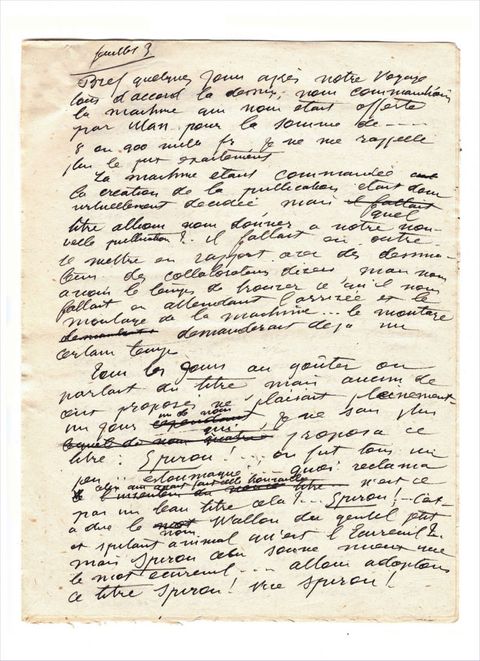 feuillet 3
Bref quelques jours après notre voyage
tous d'accord la dessus, nous commandions
la machine qui nous était offerte
par Man pour la somme de ---
8 ou 900 mille fr. Je ne me rappelle
plus le prix exactement
La machine étant commandée
la création de la publication était donc
virtuellement décidée mais il fallait quel
titre allions nous donner a notre nou-
velle publication?.. il fallait en outre
se mettre en rapport avec des dessina-
teurs des collaborateurs divers mais nous
avions le temps de trouver ce qu'il nous
fallait en attendant l'arrivée et le
montage de la machine... le montage
demanderait déjà un
certain temps
Tous les jours au goûter on
parlait du titre mais aucun de
ceux proposés ne plaisait pleinement
un jour un de nous
qui, je ne sais plus
proposa ce
titre: Spirou!... on fut tous un
peu estomaqué... quoi réclama
celui qui avait fait cette trouvaille n'est ce
pas un beau titre cela!... Spirou!.. C'est
à dire le nom Wallon du gentil petit
et spitant animal qu'est l'Ecureuil?..
mais Spirou cela sonne mieux que
le mot écureuil... allons adoptons
ce titre Spirou! vive Spirou!